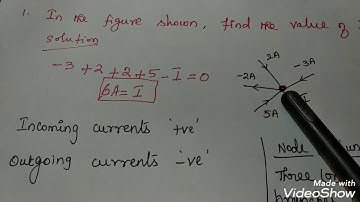 1. In the figure shown, find the value of
solution
-3 +2 +2 +5 -I = 0
6A = I
2A
-2A
-3A
5A
I
Incoming currents '+ve'
Outgoing currents '-ve'
Node
Three
Made with
VideoShow